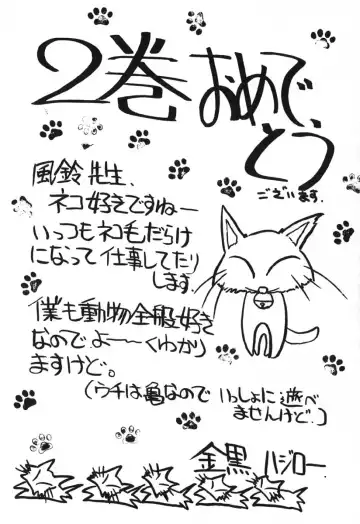 2巻おめで、
とう
ございます。
風鈴先生、
ネコ好きですねー
いっつもネコ毛だらけ
になって仕事してたり
します。
僕も動物全般好き
なのでよーーくわかり
ますけど。
(ウチは亀なので いっしょに遊べ
ませんけど。)
金黒 ハジロー